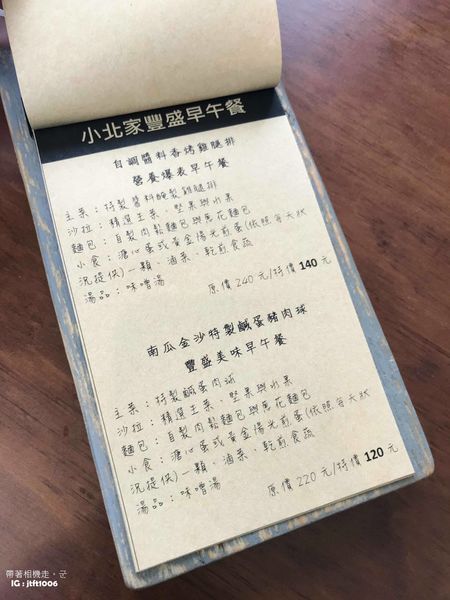 小北家豐盛早午餐
自調醬料香烤雞腿排
營養爆表早午餐
主菜：特製醬料醃製雞腿排
沙拉：精選生菜、堅果與水果
麵包：自製肉鬆麵包與蔥花麵包
小食：溏心蛋或黃金陽光煎蛋(依照每天狀
況提供)一顆、滷菜、乾煎食蔬
湯品：味噌湯
原價240元/特價140元
南瓜金沙特製鹹蛋豬肉球
豐盛美味早午餐
主菜：特製鹹蛋肉球
沙拉：精選生菜、堅果與水果
麵包：自製肉鬆麵包與蔥花麵包
小食：溏心蛋或黃金陽光煎蛋(依照每天狀
況提供)一顆、滷菜、乾煎食蔬
湯品：味噌湯
原價220元/特價120元
帶著相機走。
IG : jtft1006